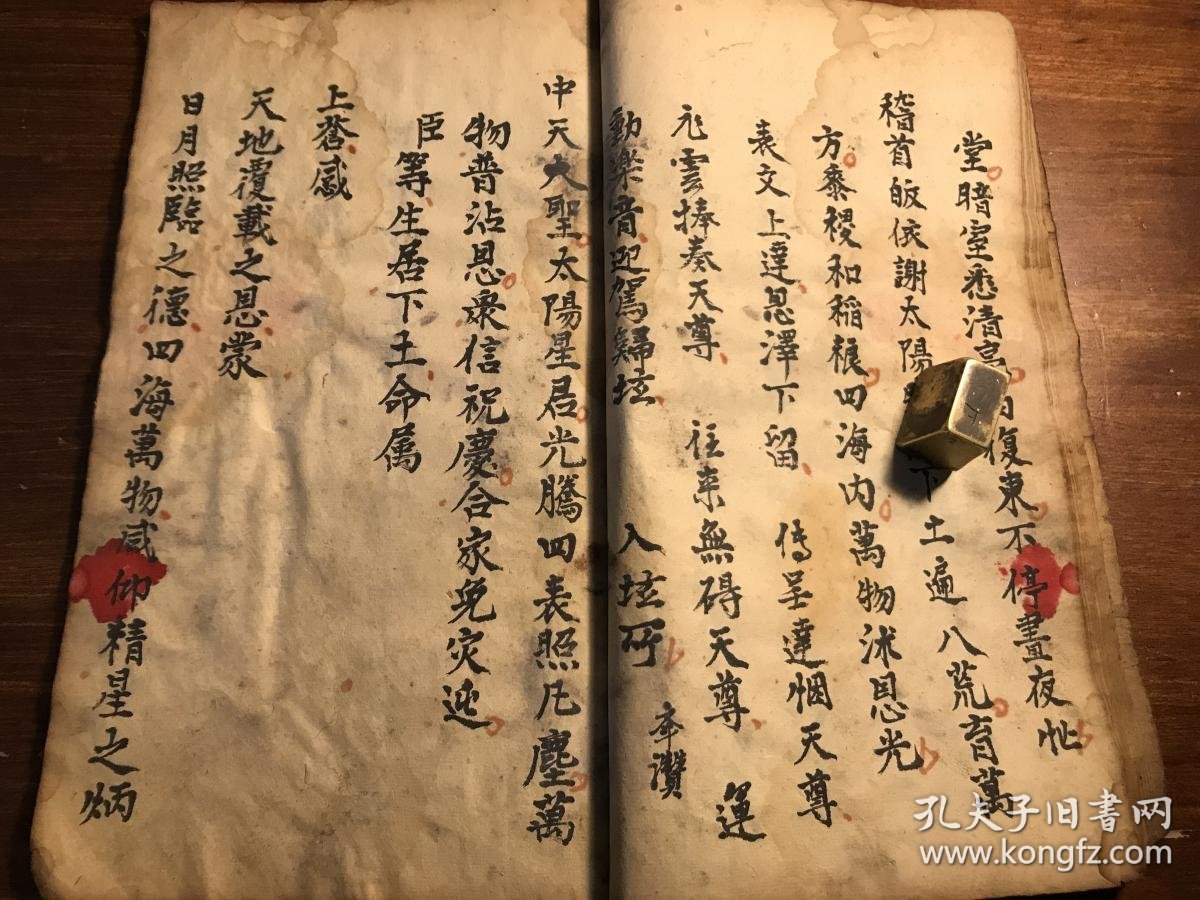 堂暗室悉清亮西復東不停晝夜忙
稽首皈依謝太陽下土遍八荒育萬
方黍稷和稻粮四海内萬物沐恩光
表文上達恩泽下留 傳呈達悃天尊
元雲捧奏天尊 往来無碍天尊 運
動樂音迎駕歸坛 入坛所 奉讚
中天大聖太陽星君光騰四表照凡塵萬
物普沾恩衆信祝慶合家免灾迍
臣等生居下土命属
上蒼感
天地覆載之恩蒙
日月照臨之德四海萬物咸仰精星之炳
孔夫子旧书网
www.kongfz.com